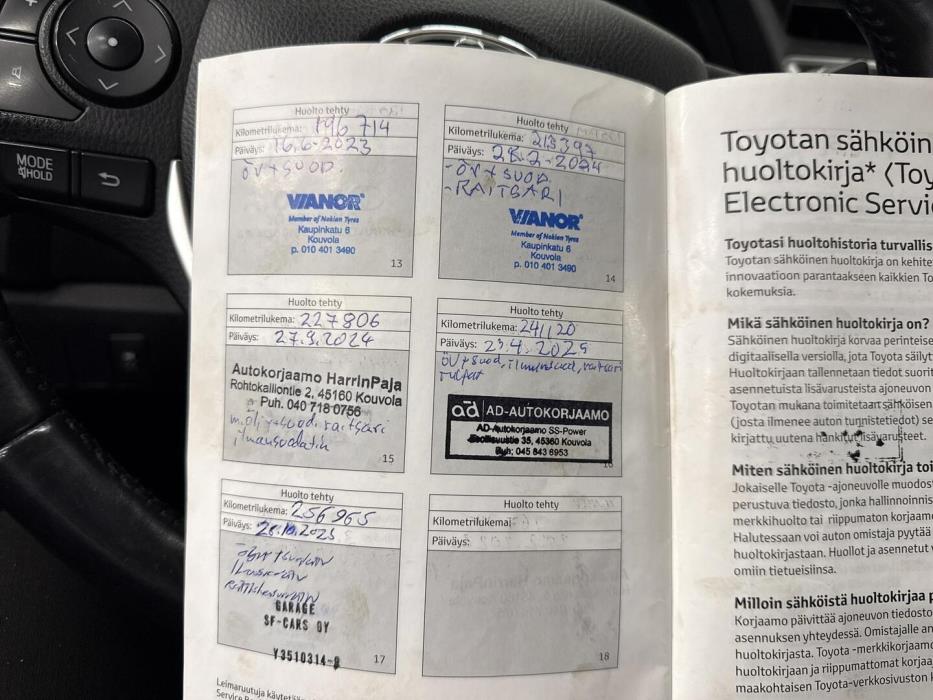 MODE
HOLD
Huolto tehty
Kilometrilukema: 196 714
Päiväys: 16.6-2023
ÖV+SUOD.
VIANOR
Member of Nokian Tyres
Kaupinkatu 6
Kouvola
p. 010 401 3490
13
Huolto tehty
Kilometrilukema: 213397
Päiväys: 28.2-2024
-ÖV+SUOD.
-RAITSARI
VIANOR
Member of Nokian Tyres
Kaupinkatu 6
Kouvola
p. 010 401 3490
14
Huolto tehty
Kilometrilukema: 227806
Päiväys: 27.9.2024
Autokorjaamo HarrinPaja
Rohtokalliontie 2, 45160 Kouvola
Puh. 040 718 0756
m.öljy+suod. raitsari
ilmansuodatin
15
Huolto tehty
Kilometrilukema: 241120
Päiväys: 23.4.2025
ÖV+suod, ilmansuod, raitsari
tulpat
ad AD-AUTOKORJAAMO
AD-Autokorjaamo SS-Power
35, 45360 Kouvola
Puh: 045 843 6953
16
Huolto tehty
Kilometrilukema: 256965
Päiväys: 28.10.2025
GARAGE
SF-CARS OY
Y3510314-9
17
Huolto tehty
Kilometrilukema:
Päiväys:
18
Leimaruutuja
Toyotan sähköin
huoltokirja* (Toy
Electronic Servi
Toyotasi huoltohistoria turvallis
Toyotan sähköinen huoltokirja on kehite
innovaatioon parantaakseen kaikkien To
kokemuksia.
Mikä sähköinen huoltokirja on?
Sähköinen huoltokirja korvaa perinteise
digitaalisella versiolla, jota Toyota säilyt
Huoltokirjaan tallennetaan tiedot suorit
asennetuista lisävarusteista ajoneuvon
Toyotan mukana toimitetaan sähköisen
(josta ilmenee auton tunnistetiedot) se
kirjattu uutena hankitut lisävarusteet.
Miten sähköinen huoltokirja toi
Jokaiselle Toyota -ajoneuvolle muodost
perustuva tiedosto, jonka hallinnoinnis
merkkihuolto tai riippumaton korjaam
Halutessaan voi auton omistaja pyytää
huoltokirjastaan. Huollot ja asennetut v
omiin tietueisiinsa.
Milloin sähköistä huoltokirjaa p
Korjaamo päivittää ajoneuvon tiedosto
asennuksen yhteydessä. Omistajalle an
huoltokirjasta. Toyota -merkkikorjaamo
huoltokirjaan ja riippumattomat korjaa
maakohtaisen Toyota-verkkosivuston k